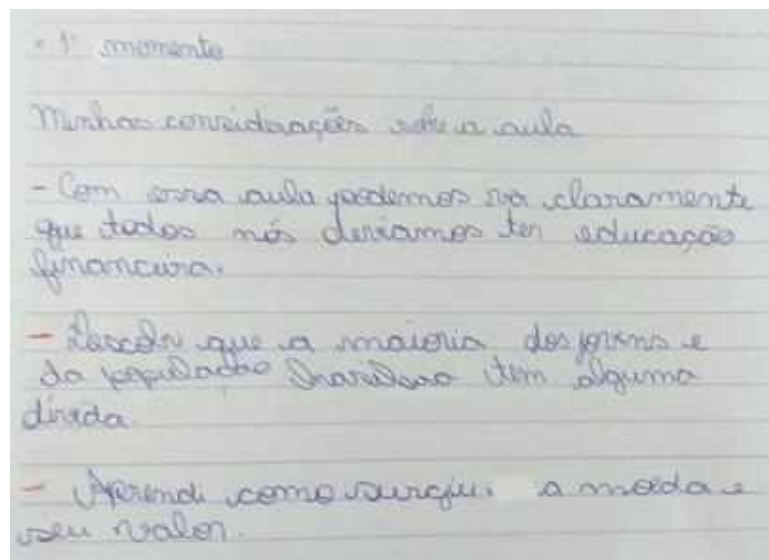 • 1º momento
Minhas considerações sobre a aula
- Com essa aula podemos ver claramente
que todos nós devíamos ter educação
financeira.
- que a maioria dos jovens e
da população brasileira tem alguma
dívida
- Aprendi como surgiu a moeda e
seu valor.